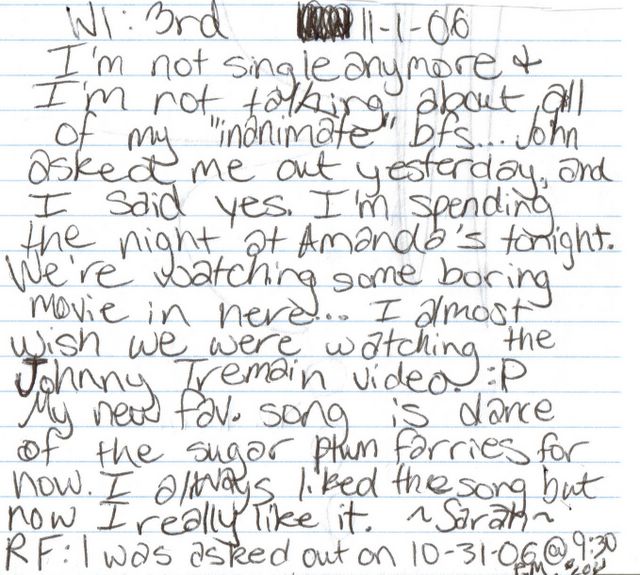 WI: 3rd 11-1-06
I'm not single anymore &
I'm not talking about all
of my "inanimate" bfs... John
asked me out yesterday, and
I said yes. I'm spending
the night at Amanda's tonight.
We're watching some boring
movie in here... I almost
wish we were watching the
Johnny Tremain video. :P
My new fav. song is dance
of the sugar plum farries for
now. I always liked the song but
now I really like it. ~Sarah~
RF: I was asked out on 10-31-06 @ 9:30
P.M.